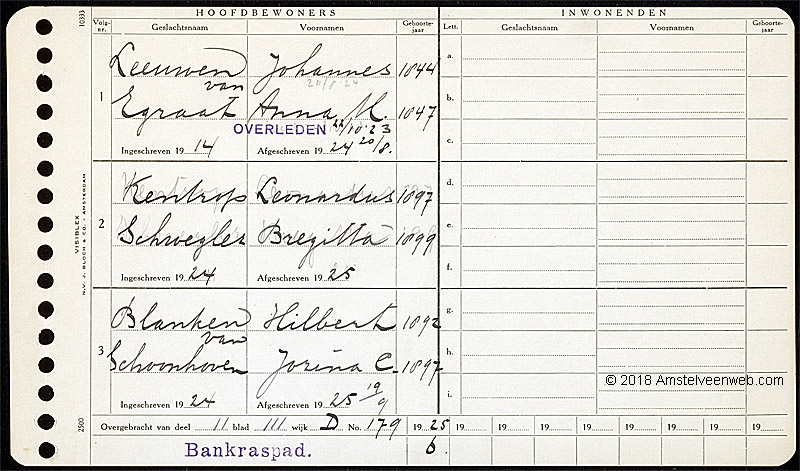 HOOFDBEWONERS INWONENDEN
Volg-nr. Geslachtsnaam Voornamen Geboorte-jaar Lett. Geslachtsnaam Voornamen Geboorte-jaar
10333
Leeuwen Johannes 1844 a.
van 20/8 24
1
Egraat Anna M. 1847 b.
OVERLEDEN 22/10 '23 c.
Ingeschreven 19 14 Afgeschreven 19 24 20/8.
Kentrop Leonardus 1897 d.
2
Schwegler Bregitta 1899 e.
Ingeschreven 19 24 Afgeschreven 19 25 f.
Blanken Hilbert 1892 g.
van
3
Schoonhoven Jorina C. 1897 h.
Ingeschreven 19 24 Afgeschreven 19 25 19/9 i.
VISIBLEX
N.V. J. BLOCH & CO. - AMSTERDAM
2500
© 2018 Amstelveenweb.com
Overgebracht van deel 11 blad 111 wijk D No. 179 19 25 19 19 19 19 19 19 19 19
Bankraspad. 6.